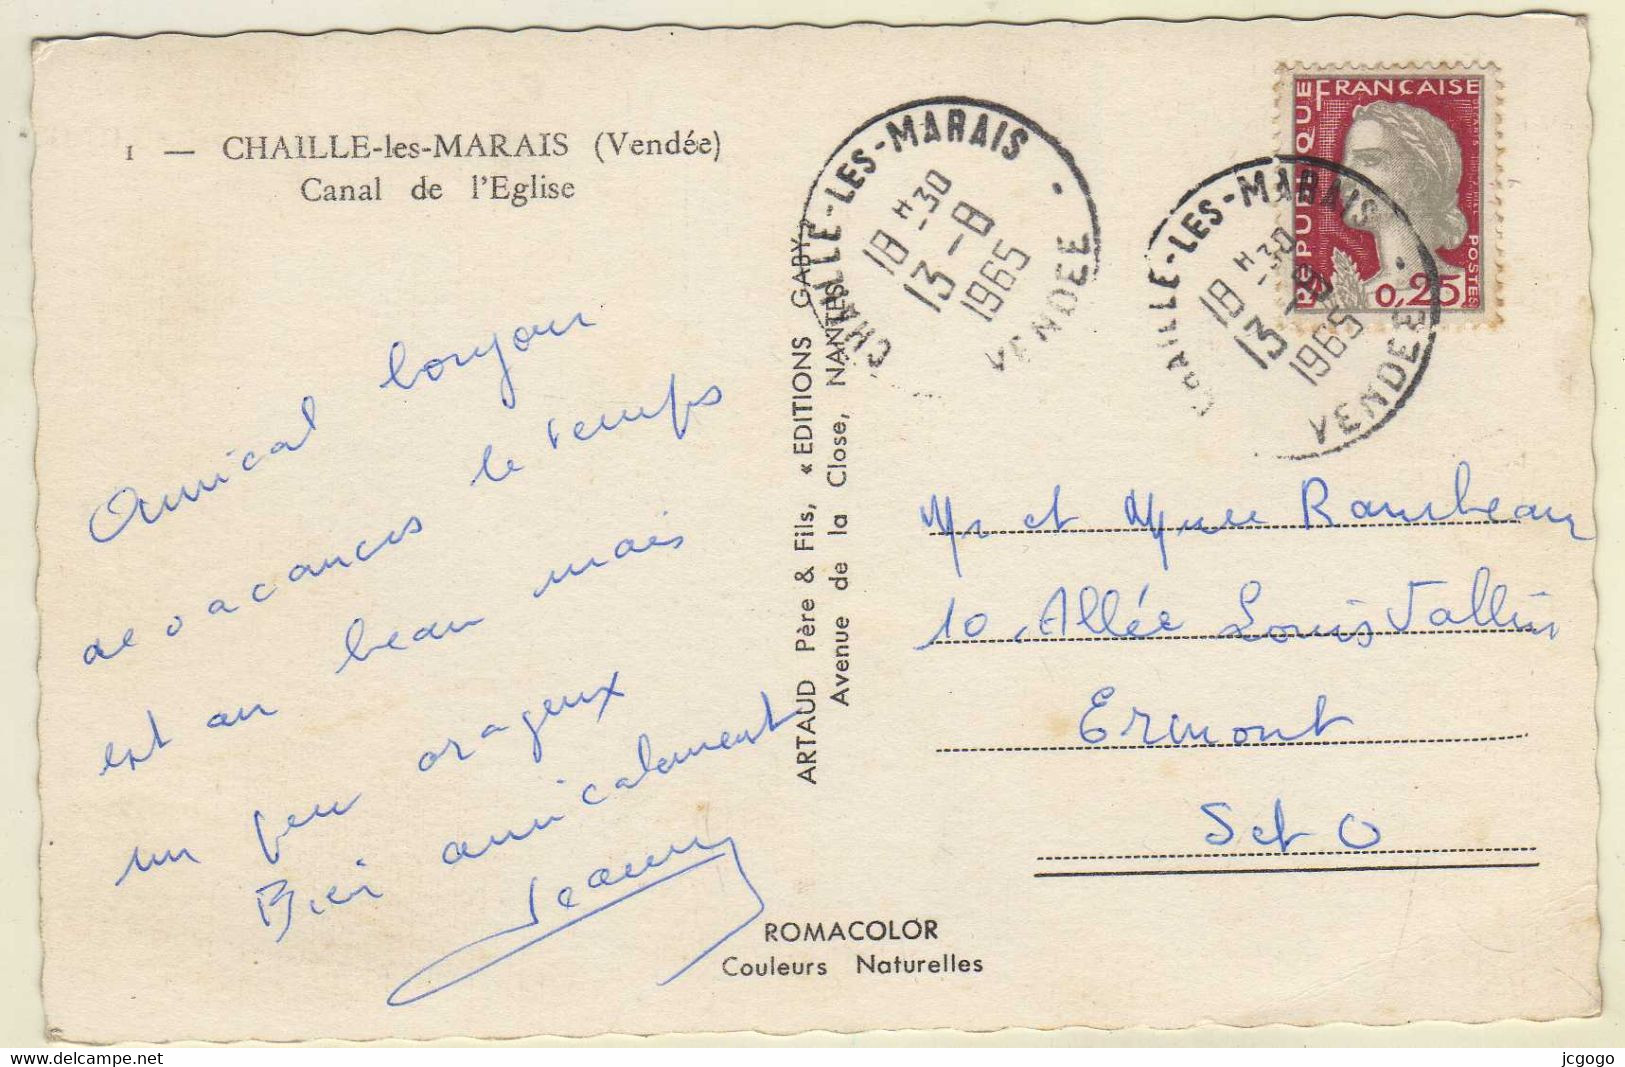 1 — CHAILLE-les-MARAIS (Vendée)
Canal de l'Eglise
Amical bonjour
de vacances le temps
est au beau mais
un peu orageux
Bien amicalement
ARTAUD Père & Fils, « EDITIONS GABY »
Avenue de la Close, NANTES
ROMACOLOR
Couleurs Naturelles
CHAILLE-LES-MARAIS
18 H 30
13-8
1965
VENDEE
CHAILLE-LES-MARAIS
18 H 30
13-8
1965
VENDEE
REPUBLIQUE FRANÇAISE
POSTES
0,25
Mr et Mme Rambeau
10 Allée Louis Vallin
Ermont
S et O
www.delcampe.net
jcgogo